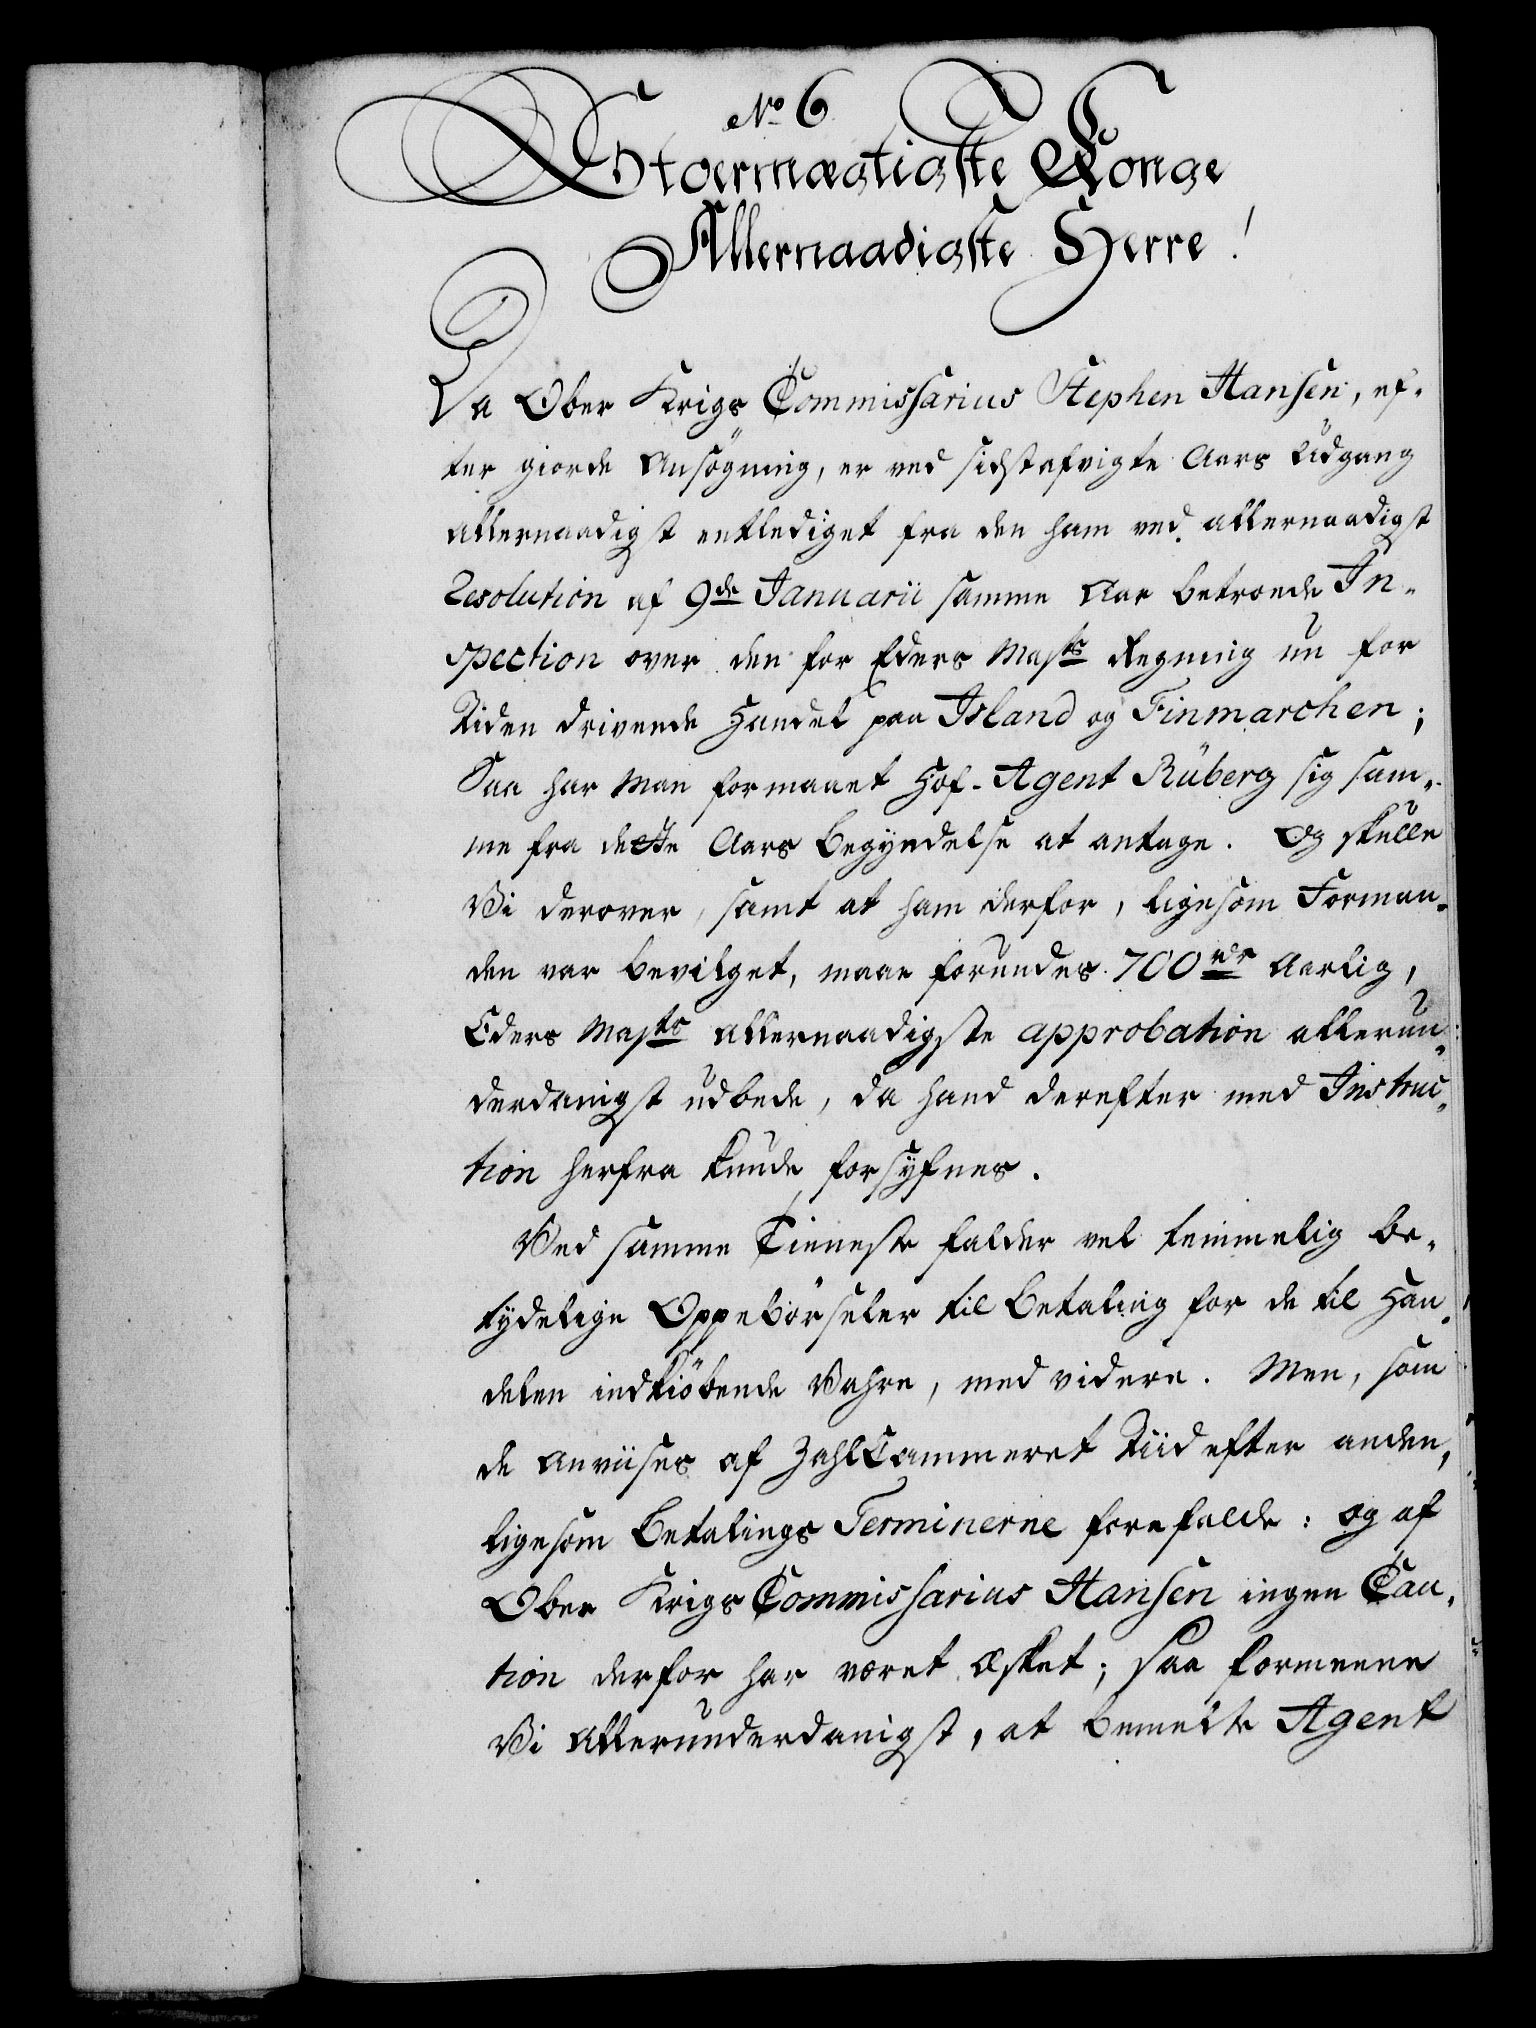 No 6
Stoermægtigste Konge
Allernaadigste Herre!
Da Ober Krigs Commissarius Stephen Hansen, ef-
ter giorde Ansögning, er ved sidstafvigte Aars Udgang
allernaadigst entlediget fra den ham ved allernaadigst
Resolution af 9de Januarii samme Aar betroede In-
spection over den for Eders Majts Regning nu for
Tiden drivende Handel paa Island og Finmarchen;
Saa har Man formaaet Hof-Agent Rüberg sig sam-
me fra dette Aars Begyndelse at antage. Og skulle
Vi derover, samt at ham derfor, ligesom Forman-
den var bevilget, maae forundes 700 rdr Aarlig,
Eders Majts allernaadigste approbation allerun-
derdanigst udbede, da hand derefter med Instruc-
tion herfra kunde forsyfnes.
Ved samme Tieneste falder vel temmelig be-
tydelige Oppebörseler til Betaling for de til Han-
delen indkiöbende Vahre, med videre. Men, som
de anviises af ZahlCammeret Tiid efter anden,
ligesom Betalings Terminerne forefalde: og af
Ober Krigs Commissarius Hansen ingen Cau-
tion derfor har været æsket; saa formeene
Vi allerunderdanigst, at bemelte Agent